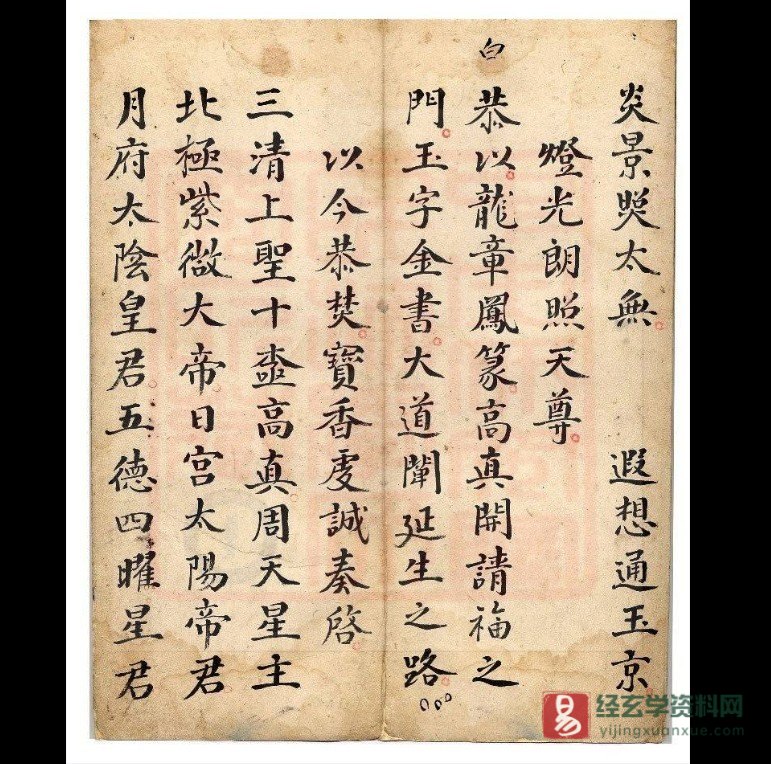 炎景煚太無　遐想通玉京
燈光朗照天尊
白
恭以龍章鳳篆高真開請福之
門玉字金書大道闡延生之路
以今恭焚寶香虔誠奏啓
三清上聖十極高真周天星主
北極紫微大帝日宮太陽帝君
月府太陰皇君五德四曜星君
易
经玄学资料网
yijingxuanxue.com